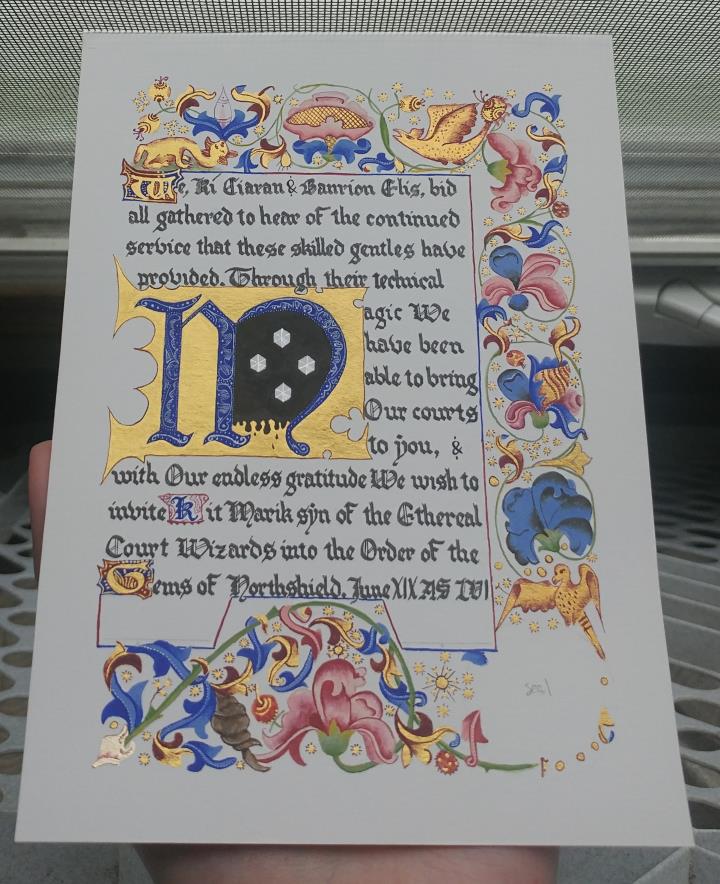 We, Rí Ciaran & Banríon Elis, bid
all gathered to hear of the continued
service that these skilled gentles have
provided. Through their technical
Magic We
have been
able to bring
Our courts
to you, &
with Our endless gratitude We wish to
invite Kit Marik syn of the Ethereal
Court Wizards into the Order of the
Gems of Northshield. June XIX AS LVI
seal